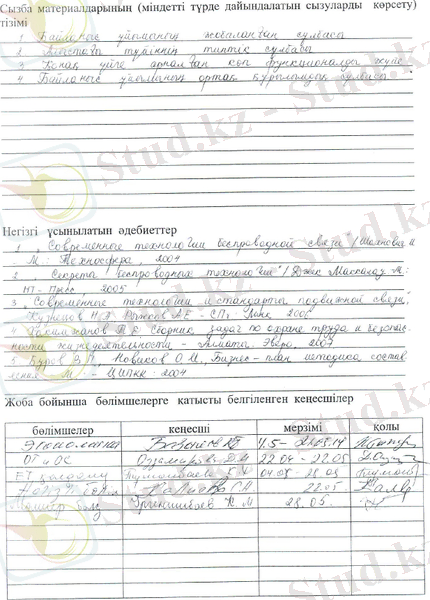 Сызба материалдарының (міндетті түрде дайындалатын сызуларды көрсету)
тізімі
1 Байланыс ұйымының жобаланған сұлбасы
2 Алыстағы түйіннің типтік сұлбасы
3 Қонақ үйге арналған көп функционалды жүйе
4 Байланыс ұйымының ортақ құрылымдық сұлбасы
Негізгі ұсынылатын әдебиеттер
1 "Современные технологии беспроводной связи" / Шахнович И
М.: Техносфера, 2004
2 "Секреты беспроводных технологий" / Джек Маккалоу М.:
НТ-Пресс, 2005
3 "Современные технологии и стандарты подвижной связи",
Кузнецов Н.А, Рыжков А.Е - СП, Линк 2006
4 Хакимжанов Т.Е Сборник задач по охране труда и безопас-
ности жизнедеятельности - Алматы. Эверо, 2007
5 Буров В.П. Новиков О.М., Бизнес-план методика состав
ления. М - ЦИПКК - 2004
Жоба бойынша бөлімшелерге қатысты белгіленген кеңесшілер
бөлімшелер кеңесші мерзімі қолы
Экономика
ОТ и ОС 22.04 - 22.05
22.05
28.05.
Stud.kz - Stud.kz